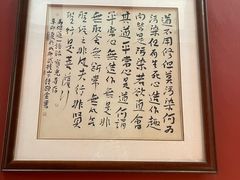 道不用修但莫污染何为
污染但有生死心造作趣
向皆是污染若欲直會
其道平常心是道何謂
平常心無造作無是非
無取捨無斷常無凡無
聖經云非凡夫行非聖賢
行是菩薩行